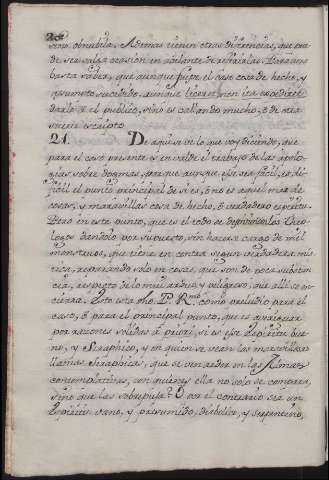 sino obnubila. Ademas tienen otras diferencias, que
de ser salga ocasion en adelante de referirlas. Para aora
basta saber, que aunque fuere el caso cosa de hecho, y
aunque
darlo a el publico, sino es callando mucho, ò de otra
suerte escripto.
21. De aqui se ve lo que voy diciendo, que
para el caso presente es en valde el trabajo de las apolo-
gias sobre dogmas, porque aunque esso sea facil, es di-
ficil el punto principal de si es, ò no es aquel mar de
cosas, y maravillas cosa de hecho, ò verdadero espiritu.
Pero en este punto, que es el todo se los Theo-
logos dandolo por supuesto, sin hacerse cargo de mil
monstruos, que tiene en contra segun verdadera mis-
tica, reparando solo en cosas, que son de poca substan-
cia, respecto de lo mui arduo y peligroso, que alli se en-
cierra. Por esto dho P. Rmô. como preludio para el
caso, ò para el principal punto, que es averiguar
por razones solidas à priori, si es esse Espiritu bue-
no, y Seraphico, y en quien se vean las maravillosas
llamas Seraphicas, que se ven arder en las Almas
contemplativas, con quienes ella no solo se compara,
sino que las sobrepuja? O por el contrario sea un
Espiritu vano, y presumido, diabolico, y serpentino,